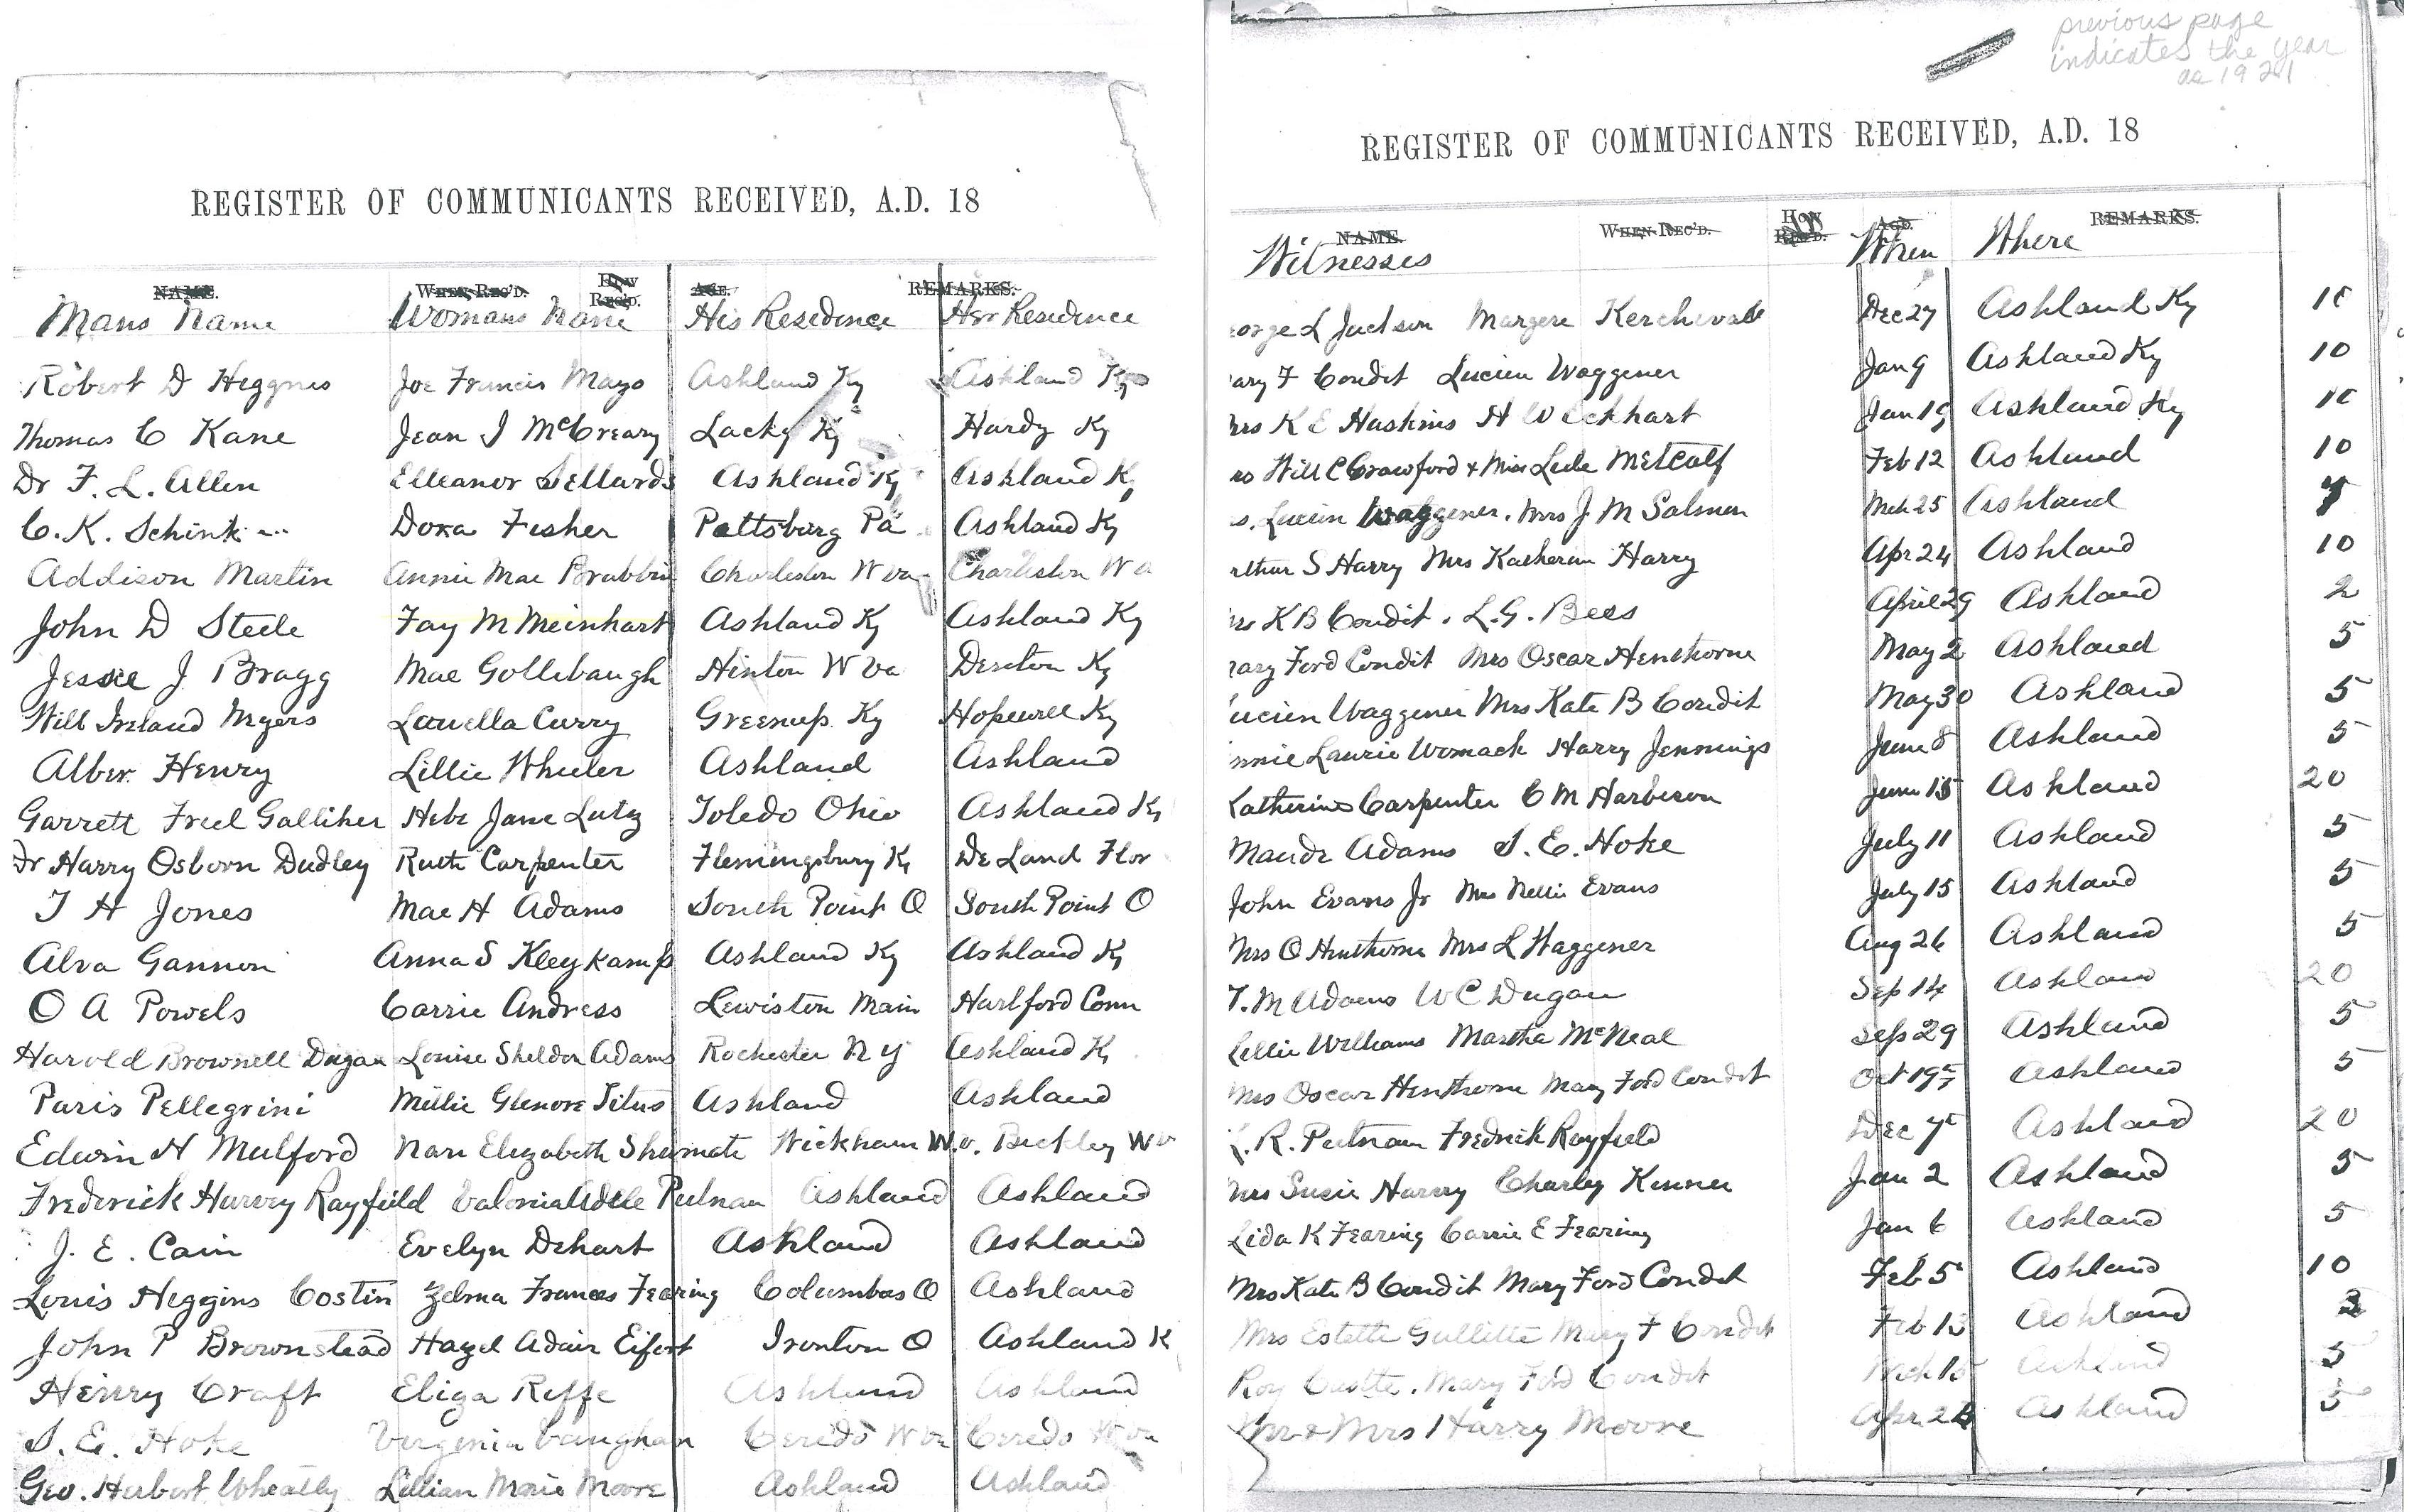 REGISTER OF COMMUNICANTS RECEIVED, A.D. 18
NAME. WHEN REC'D. HOW REC'D. AGE. REMARKS.
Mans Name Womans Name His Residence Her Residence
Robert D Heggnes Joe Francis Mayo Ashland Ky Ashland Ky
Thomas C Kane Jean J McCreary Lacky Ky Hardy Ky
Dr F. L. Allen Elleanor Sellards Ashland Ky Ashland K
C. K. Schink Doxa Fisher Pattsburg Pa Ashland Ky
Addison Martin Annie Mae Brubbin Charleston W va Charleston W a
John D Steele Fay M Meinhart Ashland Ky Ashland Ky
Jessie J Bragg Mae Gollibaugh Hinton W Va Denton Ky
Will Ireland Myers Louella Curry Greenup. Ky Hopewell Ky
Alber Henry Lillie Wheeler Ashland Ashland
Garrett Freel Galliher Hebe Jane Lutz Toledo Ohio Ashland Ky
Dr Harry Osborn Dudley Ruth Carpenter Flemingsburg Ky De Land Flor
T H Jones Mae H Adams South Point O South Point O
Alva Gannon Anna S Kleykamp Ashland Ky Ashland Ky
O A Powels Carrie Andress Lewiston Main Hartford Conn
Harold Brownell Dugan Louise Sheldon Adams Rochester N Y Ashland K
Paris Pellegrini Millie Glenore Titus Ashland Ashland
Edwin H Mulford Nan Elizabeth Shumate Wickham W.v. Beckley W v
Frederick Harvey Rayfield Valonia Adele Putnam Ashland Ashland
J. E. Cain Evelyn Dehart Ashland Ashland
Louis Heggins Costin Zelma Frances Fearing Columbus O Ashland
John P Brownstead Hazel Adair Eifort Ironton O Ashland K
Henry Craft Eliza Riffe Ashland Ashland
S. E. Hoke Virginia Vaughan Ceredo W va Ceredo W va
Geo. Herbert Wheatly Lillian Marie Moore Ashland Ashland
previous page
indicates the year
as 1921
REGISTER OF COMMUNICANTS RECEIVED, A.D. 18
NAME. WHEN REC'D. HOW REC'D. AGE. REMARKS.
Witnesses When Where
orge L Jackson Margere Kerchevale Dec 27 Ashland Ky 10
ary F Condit Lucien Waggener Jan 9 Ashland Ky 10
rs K E Haskins H W Eckhart Jan 19 Ashland Ky 10
rs Will C Crawford & Miss Lula Metcalf Feb 12 Ashland 10
s. Lucien Waggener. Mrs J M Salmon Mch 25 Ashland
rthur S Harry Mrs Katherine Harry Apr 24 Ashland 10
rs K B Condit. L. G. Bess April 29 Ashland 2
ary Ford Condit Mrs Oscar Henthorne May 2 Ashland 5
ucien Waggener Mrs Kate B Condit May 30 Ashland 5
nnie Laurie Womack Harry Jennings June 8 Ashland 5
Katherine Carpenter C M Harbeson June 15 Ashland 20
Maude Adams S. E. Hoke July 11 Ashland 5
John Evans Jr Mrs Nellie Evans July 15 Ashland 5
Mrs O Henthorne Mrs L Waggener Aug 26 Ashland 5
T. M Adams W C Dugan Sep 14 Ashland 20
Lillie Williams Martha McNeal Sep 29 Ashland 5
Mrs Oscar Henthorne Mary Ford Condit Oct 19 Ashland 5
R. Putnam Fredrick Rayfield Dec 7 Ashland 20
Mrs Susie Harvey Charley Kenner Jan 2 Ashland 5
Lida K Fearing Carrie E Fearing Jan 6 Ashland 5
Mrs Kate B Condit Mary Ford Condit Feb 5 Ashland 10
Mrs Estelle Gullette Mary F Condit Feb 13 Ashland
Roy Castle. Mary Ford Condit Mch 15 Ashland 5
Mr & Mrs Harry Moore Apr 28 Ashland 5